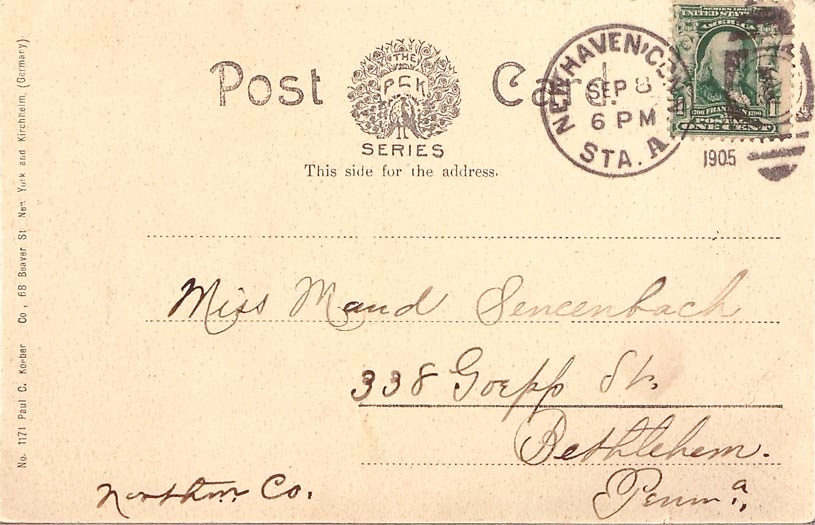 Post Card
THE
PCK
SERIES
This side for the address.
NEW HAVEN, CONN.
SEP 8
6 PM
STA. A.
1905
SERIES 1902
UNITED STATES OF
AMERICA
FRANKLIN
POSTAGE
ONE CENT
Miss Maud Sencenbach
338 Goepp St.
Bethlehem.
Penna,
Northm. Co.
No. 1171 Paul C. Koeber Co, 68 Beaver St New York and Kirchheim, (Germany).